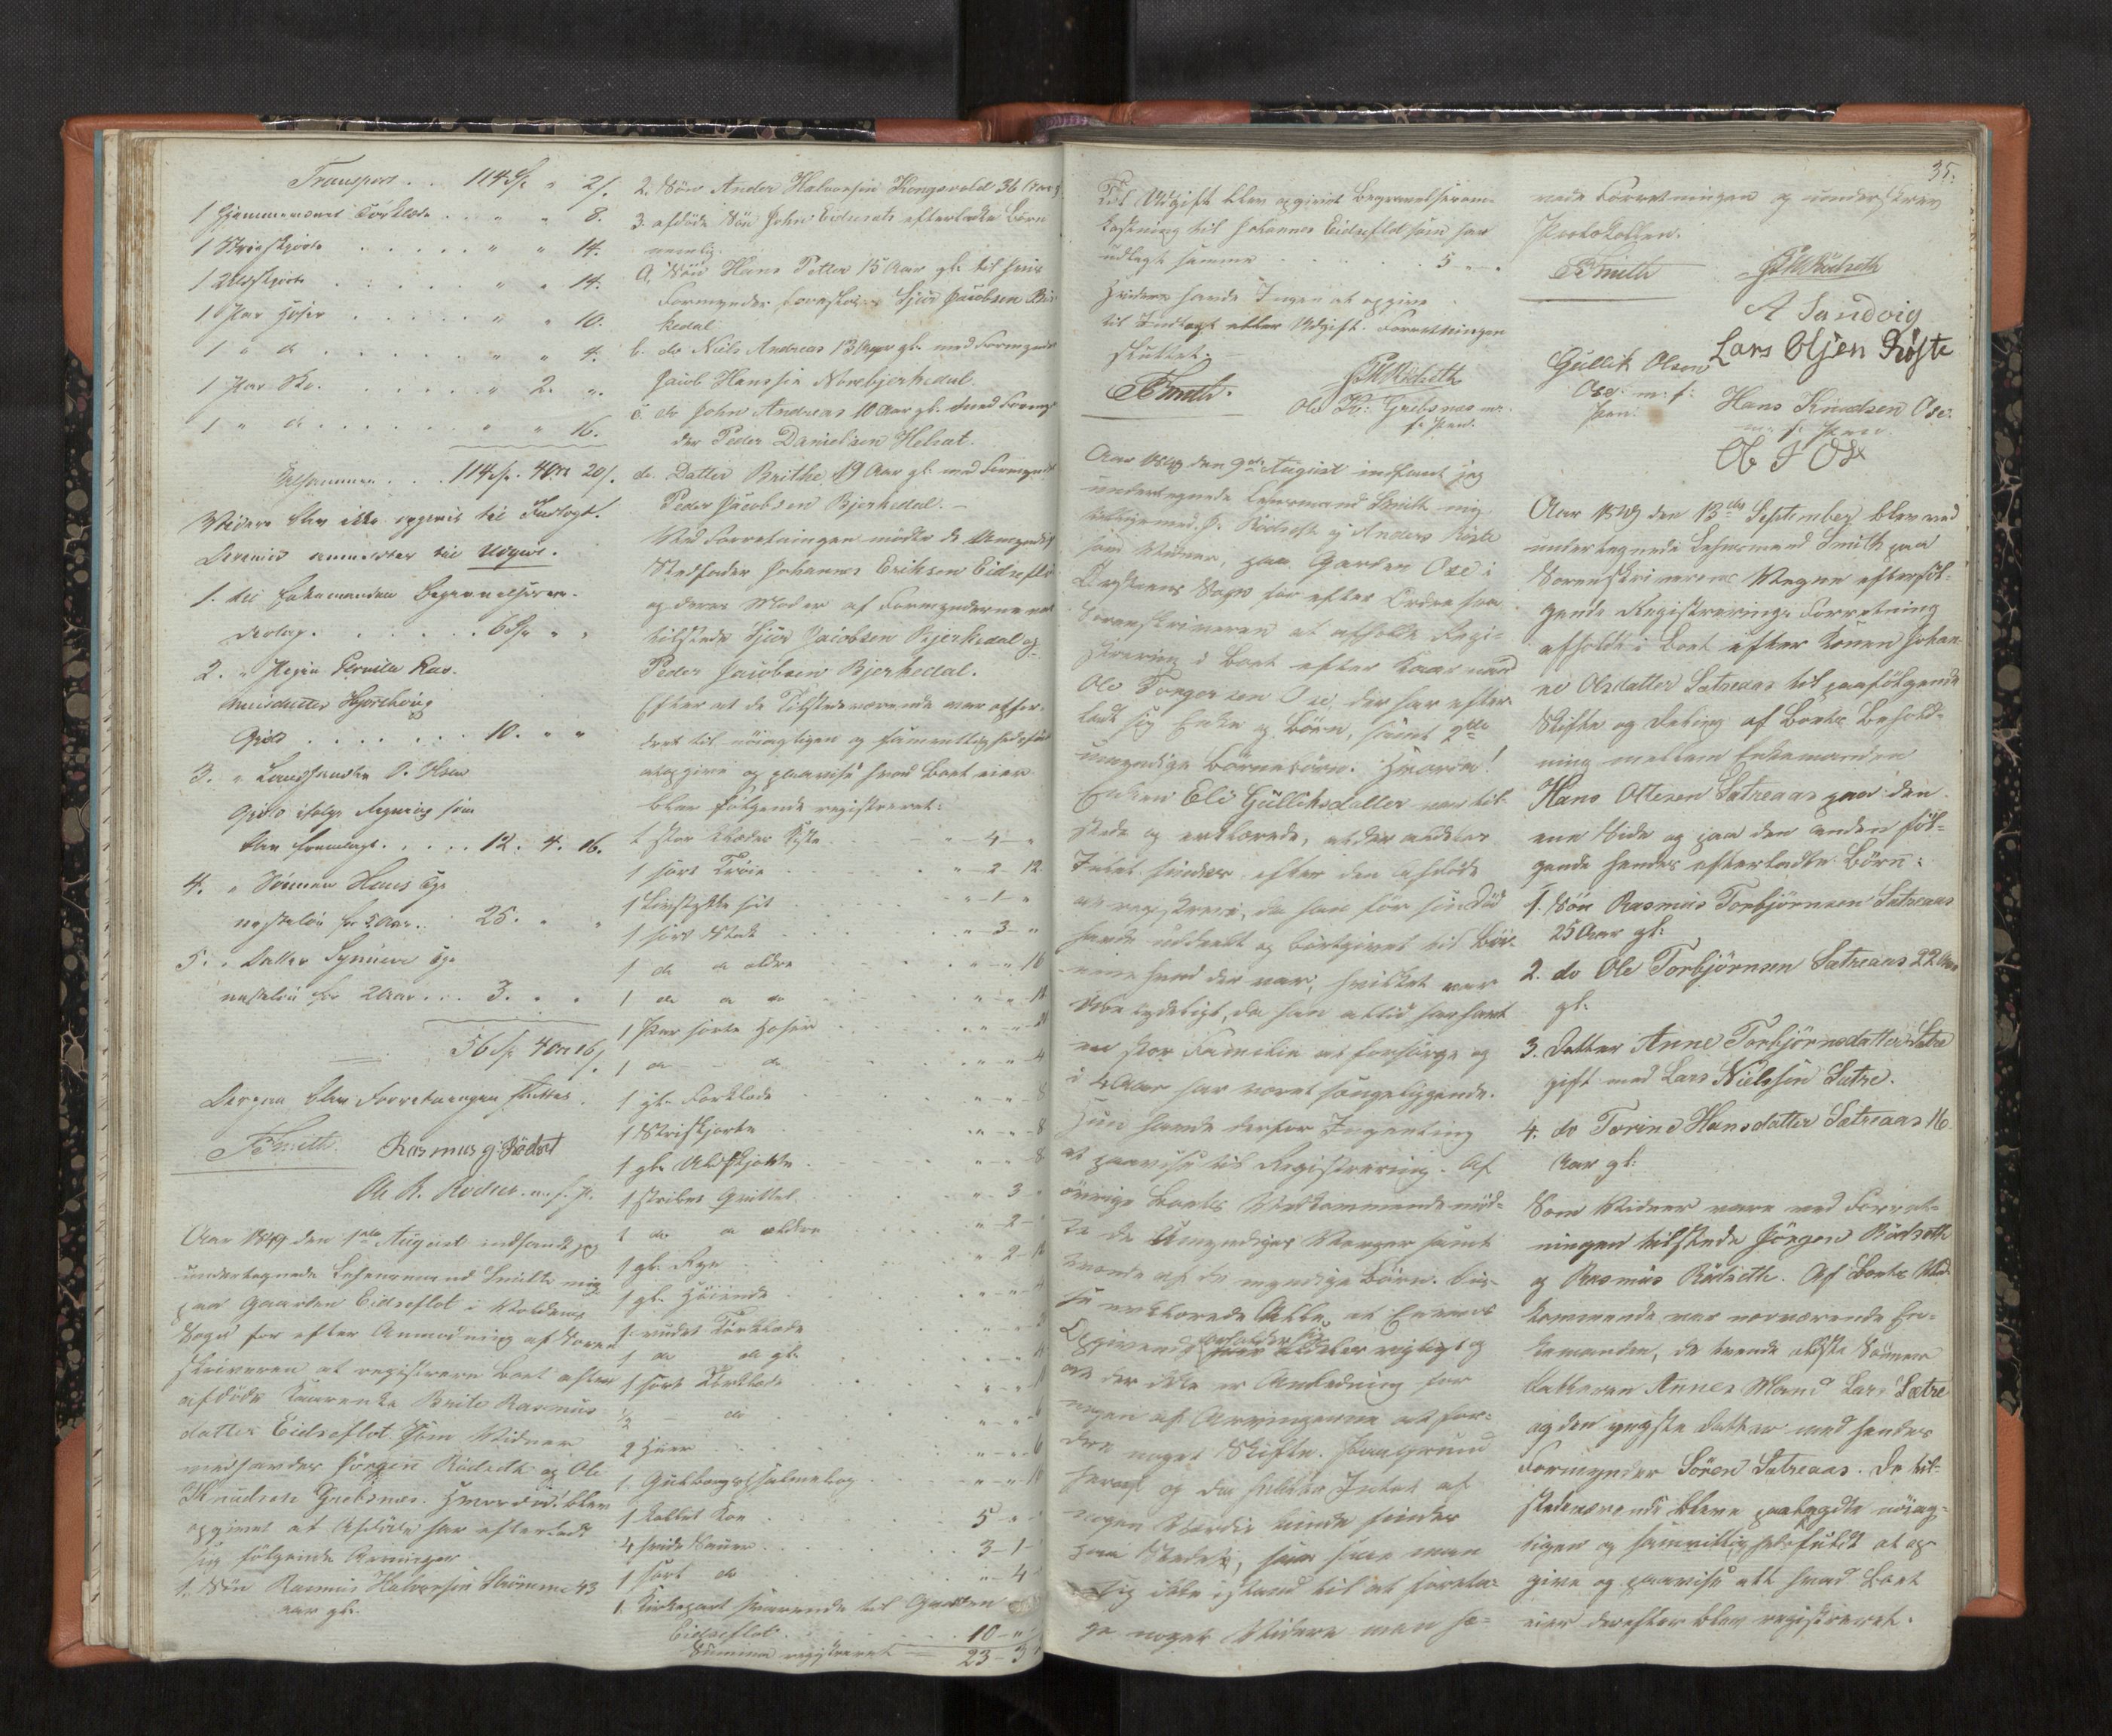 Transport . . 114 Sp " 2/.
1 hjemmevævet Tørklæde . . " " 8.
1 Striskjorte . . . . . " " 14.
1 Uldskjorte . . . . . " " 14.
1 Par Hoser . . . . . " " 10.
1 " do . . . . . " " 4.
1 Par Sko. . . . . . " 2. ".
1 " do . . . . . " " 16.
Tilsammen . . . 114 Sp. 4 Ort 20/.
Videre blev ikke opgivet til Indtægt.
Derimod anmeldtes til Udgivt.
1. til Enkemanden Begravelses
. . . . . . 6 Sp " "
2. " Pigen Pernille Ras-
musdatter Hjorthoug
Gjæld . . . . . . . 10. " "
3. " Landhandler O. Olsen
Gjæld ifølge Regning som
blev fremlagt. . . . . . 12. 4. 16.
4. " Sønnen Hans
for 5 Aar. . 25. " "
5. " Datter Synneve
for 2 Aar . . . 3. " "
56 Sp 4 Ort 16/.
Derpaa blev Forretningen sluttet.
Smith. Rasmus J. Rødset
Ole R. m. f. P.
Aar 1849 den 1ste August indfandt jeg
undertegnede Lehnsmand Smith mig
paa Gaarden Eidseflot i Voldens
Sogn for efter Anmodning af Soren-
skriveren at registrere Boet efter
afdøde Kaarenke Brite Rasmus-
datter Eidseflot. Som Vidner
medhavdes Jørgen Rødseth og Ole
Knudsen Grebsnæs. Hvorda! blev
opgivet at Afdøde har efterladt
sig følgende Arvinger
1. Søn Rasmus Halvorsen Strømme 43
Aar gl.
2. Søn Ander Halvorsen Kongsvold 36 Aar g
3. afdøde Søn John Eidsets efterladte Børn
nemlig.
a, Søn Hans Petter 15 Aar gl. til hvis
Formynder foreslaaes Sjur Jacobsen Bjer
kedal
b. do Niels Andreas 13 Aar gl. med Formynder
Jacob Hanssen Norebjerkedal.
c. do John Andreas 10 Aar gl. med Formyn
der Peder Danielsen Helset.
d. Datter Brithe 19 Aar gl. med Formynder
Peder Jacobsen Bjerkedal. –
Ved Forretningen mødte de Umyndiges
Stedfader Johannes Eriksen Eidseflot
og deres Moder af Formynderne var
tilstede Sjur Jacobsen Bjerkedal og
Peder Jacobsen Bjerkedal.
Efter at de Tilstedeværende var opfor-
dret til nøiagtigen og samvittighedsfuld
at opgive og paavise hvad Boet eier
blev følgende registreret:
1 stor Klæder Kiste . . . " 4 – "
1 sort Trøie . . . " – 2 – 12
1 Livstykke . . . " – 1 – "
1 sort Stak . . . " – 3 – "
1 do do ældre . . . " – " – 16
1 do do do . . . " – " – 12
1 Par sorte Hoser . . . " – " – 20
1 do – do . . . " – " – 4
1 gl. Forklæde . . . " – " – 8
1 Striskjorte . . . " – " – 8
1 gl. Uldskjorte . . . " – " – 8
1 stribet Qvittel . . . " – 3 – "
1 do do ældre . . . " – 2 –
1 gl. Rye . . . " – 2 – 12
1 gl. Høiende . . . " – " – 4
1 rudet Tørklæde . . .
1 do do gl.
1 sort Tørklæde
½ – do
2 Huer . . . " – " – 6
1. Guldbergs Psalmebog . . . " – " – 10
1 kollet Koe . . . 5 – " –
4 hvide Sauer . . . 3 – 1 –
1 sort do . . . " – 4 –
1. Kirkepart svarende til Gaarden
Eidseflot. . . . 10 – " –
Summa registreret = 23 – 3
35.
Til Udgift blev opgivet Begravelsesom-
kostning til Johannes Eidseflot som har
udlagt samme . . . . . 5 – " –
Videre havde Ingen at opgive
til Indtægt eller Udgift. Forretningen
sluttet. –
Smith. J. Rødseth
Ole K: Grebsnæs m.
f. Pen.
Aar 1849 den 9de August indfant jeg
undertegnede Lehnsmand Smith mig
tilligemed J. Rødseth og Anders Røste
som Vidner, paa Gaarden Ose i
Ørstens Sogn for efter Ordre fra
Sorenskriveren at afholde Regi-
strering i Boet efter Kaarmand
Ole Torgersen Ose, der har efter-
ladt sig Enke og Børn, samt 2de
umyndige Børnebørn. Hvorda!
Enken Eli Gullichsdatter var til-
stede og erklærede, at der aldeles
Intet findes efter den Afdøde
at registrere, da han før sin Død
havde uddeelt og bortgivet til Bør-
nene hvad der var, hvilket var
ubetydeligt, da han altid har havt
en stor Familie at forsørge og
i 4 Aar har været sengeliggende.
Hun havde derfor Ingenting
at paavise til Registrering. Af
øvrige Boets Vedkommende mød-
te de Umyndiges Værger samt
tvende af de myndige Børn. Dis-
se erklærede Alle, at Enkens
Opgivende forholder sig rigtigt og
at der ikke er Anledning for
nogen af Arvingerne at for-
dre noget Skifte. Paa Grund
heraf og da heller Intet af
nogen Værdie kunde findes
paa Stedet, saa saae man
sig ikke istand til at foreta-
ge noget Videre men hæ-
vede Forretningen og underskrev
Protokollen.
Smith J. Rødseth
A Sandvig
Lars Olsen Røste
Gullik Olsen
Ose m: f:
Pen:
Hans Knudsen Ose.
m: f: Pen.
O T O S
Aar 1849 den 13de September blev ved
undertegnede Lehnsmand Smith paa
Sorenskriverens Vegne efterføl-
gende Registrerings Forretning
afholdt i Boet efter Konen Johan-
ne Olsdatter Sætreaas til paafølgende
Skifte og Deling af Boets Behold-
ning mellem Enkemanden
Hans Ottesen Sætreaas paa den
ene Side og paa den anden føl-
gende hendes efterladte Børn:
1. Søn Rasmus Torbjørnsen Sætreaas
25 Aar gl:
2. do Ole Torbjørnsen Sætreaas 22 Aar
gl:
3. Datter Anne Torbjørnsdatter Sætre
gift med Lars Nielssen Sætre.
4. do Torine Hansdatter Sætreaas 16
Aar gl:
Som Vidner vare ved Forret-
ningen tilstede Jørgen Rødseth
og Rasmus Rødseth. Af Boets Ved-
kommende var nærværende En-
kemanden, de tvende ældste Sønner
Datteren Annes Mand Lars Sætre
og den yngste Datter med hendes
Formynder Søren Sætreaas. De til-
stedeværende bleve paalagdte nøiag-
tigen og samvittighedsfuldt at op-
give og paavise alt hvad Boet
eier derefter blev registreret.